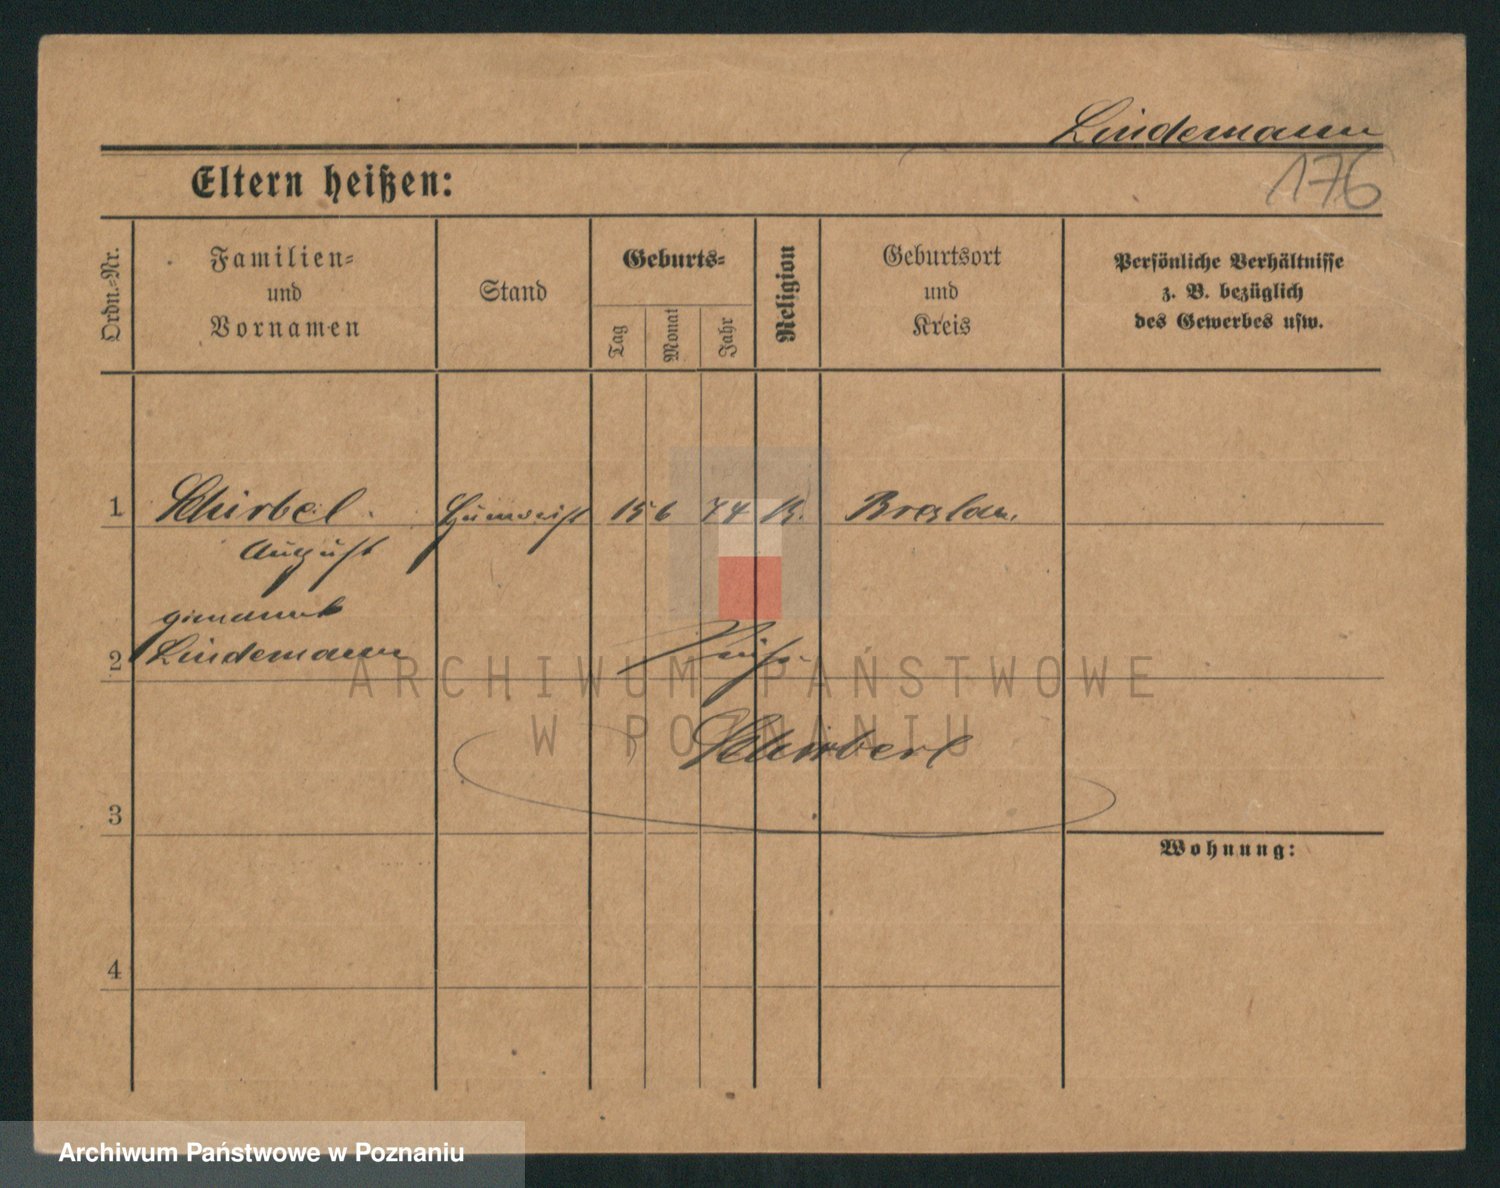 Lindemann
176
Eltern heißen:
Ordn.-Nr.
Familien-
und
Vornamen
Stand
Geburts-
Tag
Monat
Jahr
Religion
Geburtsort
und
Kreis
Persönliche Verhältnisse
z. B. bezüglich
des Gewerbes usw.
1 Schirbel 15 6 74 Breslau.
August
genannt
2 Lindemann
Siehe
3
Wohnung:
4
ARCHIWUM PAŃSTWOWE
W POZNANIU
Archiwum Państwowe w Poznaniu